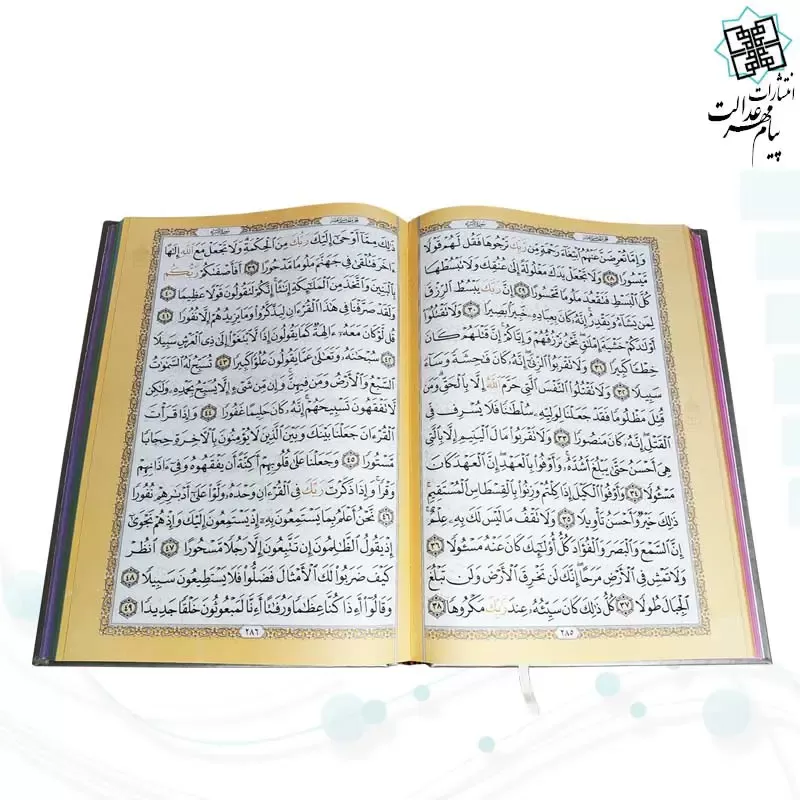 انتشارات
پیام مهر عدالت
وَإِمَّا تُعْرِضَنَّ عَنْهُمُ ابْتِغَاءَ رَحْمَةٍ مِّن رَّبِّكَ تَرْجُوهَا فَقُل لَّهُمْ قَوْلًا
مَّيْسُورًا ٢٨ وَلَا تَجْعَلْ يَدَكَ مَغْلُولَةً إِلَىٰ عُنُقِكَ وَلَا تَبْسُطْهَا
كُلَّ الْبَسْطِ فَتَقْعُدَ مَلُومًا مَّحْسُورًا ٢٩ إِنَّ رَبَّكَ يَبْسُطُ الرِّزْقَ
لِمَن يَشَاءُ وَيَقْدِرُ إِنَّهُ كَانَ بِعِبَادِهِ خَبِيرًا بَصِيرًا ٣٠ وَلَا تَقْتُلُوا
أَوْلَادَكُمْ خَشْيَةَ إِمْلَاقٍ نَّحْنُ نَرْزُقُهُمْ وَإِيَّاكُمْ إِنَّ قَتْلَهُمْ كَانَ
خِطْئًا كَبِيرًا ٣١ وَلَا تَقْرَبُوا الزِّنَىٰ إِنَّهُ كَانَ فَاحِشَةً وَسَاءَ
سَبِيلًا ٣٢ وَلَا تَقْتُلُوا النَّفْسَ الَّتِي حَرَّمَ اللَّهُ إِلَّا بِالْحَقِّ وَمَن
قُتِلَ مَظْلُومًا فَقَدْ جَعَلْنَا لِوَلِيِّهِ سُلْطَانًا فَلَا يُسْرِف فِّي
الْقَتْلِ إِنَّهُ كَانَ مَنصُورًا ٣٣ وَلَا تَقْرَبُوا مَالَ الْيَتِيمِ إِلَّا بِالَّتِي
هِيَ أَحْسَنُ حَتَّىٰ يَبْلُغَ أَشُدَّهُ وَأَوْفُوا بِالْعَهْدِ إِنَّ الْعَهْدَ كَانَ
مَسْئُولًا ٣٤ وَأَوْفُوا الْكَيْلَ إِذَا كِلْتُمْ وَزِنُوا بِالْقِسْطَاسِ الْمُسْتَقِيمِ
ذَٰلِكَ خَيْرٌ وَأَحْسَنُ تَأْوِيلًا ٣٥ وَلَا تَقْفُ مَا لَيْسَ لَكَ بِهِ عِلْمٌ
إِنَّ السَّمْعَ وَالْبَصَرَ وَالْفُؤَادَ كُلُّ أُولَٰئِكَ كَانَ عَنْهُ مَسْئُولًا ٣٦
وَلَا تَمْشِ فِي الْأَرْضِ مَرَحًا إِنَّكَ لَن تَخْرِقَ الْأَرْضَ وَلَن تَبْلُغَ
الْجِبَالَ طُولًا ٣٧ كُلُّ ذَٰلِكَ كَانَ سَيِّئُهُ عِندَ رَبِّكَ مَكْرُوهًا ٣٨
٢٨٥
ذَٰلِكَ مِمَّا أَوْحَىٰ إِلَيْكَ رَبُّكَ مِنَ الْحِكْمَةِ وَلَا تَجْعَلْ مَعَ اللَّهِ إِلَٰهًا
ءَاخَرَ فَتُلْقَىٰ فِي جَهَنَّمَ مَلُومًا مَّدْحُورًا ٣٩ أَفَأَصْفَاكُمْ رَبُّكُم
بِالْبَنِينَ وَاتَّخَذَ مِنَ الْمَلَائِكَةِ إِنَاثًا إِنَّكُمْ لَتَقُولُونَ قَوْلًا عَظِيمًا ٤٠
وَلَقَدْ صَرَّفْنَا فِي هَٰذَا الْقُرْءَانِ لِيَذَّكَّرُوا وَمَا يَزِيدُهُمْ إِلَّا نُفُورًا ٤١
قُل لَّوْ كَانَ مَعَهُ ءَالِهَةٌ كَمَا يَقُولُونَ إِذًا لَّابْتَغَوْا إِلَىٰ ذِي الْعَرْشِ سَبِيلًا
٤٢ سُبْحَانَهُ وَتَعَالَىٰ عَمَّا يَقُولُونَ عُلُوًّا كَبِيرًا ٤٣ تُسَبِّحُ لَهُ السَّمَاوَاتُ
السَّبْعُ وَالْأَرْضُ وَمَن فِيهِنَّ وَإِن مِّن شَيْءٍ إِلَّا يُسَبِّحُ بِحَمْدِهِ وَلَٰكِن
لَّا تَفْقَهُونَ تَسْبِيحَهُمْ إِنَّهُ كَانَ حَلِيمًا غَفُورًا ٤٤ وَإِذَا قَرَأْتَ
الْقُرْءَانَ جَعَلْنَا بَيْنَكَ وَبَيْنَ الَّذِينَ لَا يُؤْمِنُونَ بِالْآخِرَةِ حِجَابًا
مَّسْتُورًا ٤٥ وَجَعَلْنَا عَلَىٰ قُلُوبِهِمْ أَكِنَّةً أَن يَفْقَهُوهُ وَفِي ءَاذَانِهِمْ
وَقْرًا وَإِذَا ذَكَرْتَ رَبَّكَ فِي الْقُرْءَانِ وَحْدَهُ وَلَّوْا عَلَىٰ أَدْبَارِهِمْ نُفُورًا
٤٦ نَّحْنُ أَعْلَمُ بِمَا يَسْتَمِعُونَ بِهِ إِذْ يَسْتَمِعُونَ إِلَيْكَ وَإِذْ هُمْ نَجْوَىٰ
إِذْ يَقُولُ الظَّالِمُونَ إِن تَتَّبِعُونَ إِلَّا رَجُلًا مَّسْحُورًا ٤٧ انظُرْ
كَيْفَ ضَرَبُوا لَكَ الْأَمْثَالَ فَضَلُّوا فَلَا يَسْتَطِيعُونَ سَبِيلًا ٤٨
وَقَالُوا أَءِذَا كُنَّا عِظَامًا وَرُفَاتًا أَءِنَّا لَمَبْعُوثُونَ خَلْقًا جَدِيدًا ٤٩
٢٨٦